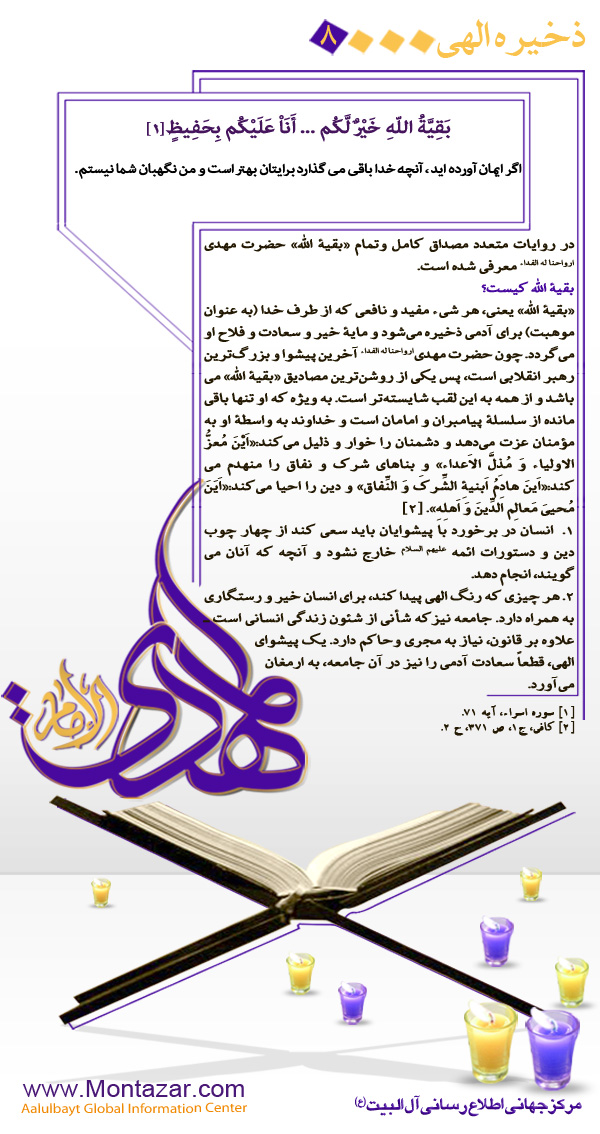 ذخیره الهی ۸
بَقِيَّةُ اللّهِ خَيْرٌ لَّكُم ... أَنَاْ عَلَيْكُم بِحَفِيظٍ[۱]
اگر ایمان آورده اید ، آنچه خدا باقی می گذارد برایتان بهتر است و من نگهبان شما نیستم.
در روایات متعدد مصداق کامل وتمام «بقیة الله» حضرت مهدی
ارواحنا له الفداء معرفی شده است.
بقیة الله کیست؟
«بقیة الله» یعنی، هر شیء مفید و نافعی که از طرف خدا (به عنوان
موهبت) برای آدمی ذخیره می‌شود و مایة خیر و سعادت و فلاح او
می‌گردد. چون حضرت مهدی ارواحنا له الفداء آخرین پیشوا و بزرگ‌ترین
رهبر انقلابی است، پس یکی از روشن‌ترین مصادیق «بقیة الله» می
باشد و از همه به این لقب شایسته‌تر است. به ویژه که او تنها باقی
مانده از سلسلة پیامبران و امامان است و خداوند به واسطة او به
مؤمنان عزت می‌دهد و دشمنان را خوار و ذلیل می‌کند:«اَیْنَ مُعزُّ
الاولیاء وَ مُذلَّ الاَعداء» و بناهای شرک و نفاق را منهدم می
کند:«اَینَ هادِمُ اَبنیةِ الشِّركَ وَ النِّفاق» و دین را احیا می‌کند:«اَینَ
مُحییَ مَعالِمِ الدِّینَ وَ اَهلِهِ». [۲]
۱. انسان در برخورد با پیشوایان باید سعی کند از چهار چوب
دین و دستورات ائمه علیهم السلام خارج نشود و آنچه که آنان می
گویند، انجام دهد.
۲. هر چیزی که رنگ الهی پیدا کند، برای انسان خیر و رستگاری
به همراه دارد. جامعه نیز که شأنی از شئون زندگی انسانی است ..
علاوه بر قانون، نیاز به مجری وحاکم دارد. یک پیشوای
الهی، قطعاً سعادت آدمی را نیز در آن جامعه، به ارمغان
می‌آورد.
[۱] سوره اسراء، آیه ۷۱.
[۲] کافی، ج۱، ص ۳۷۱، ح ۲.
الإمام
المهدی
www.Montazar.com
Aalulbayt Global Information Center
مرکز جهانی اطلاع رسانی آل البیت (ع)